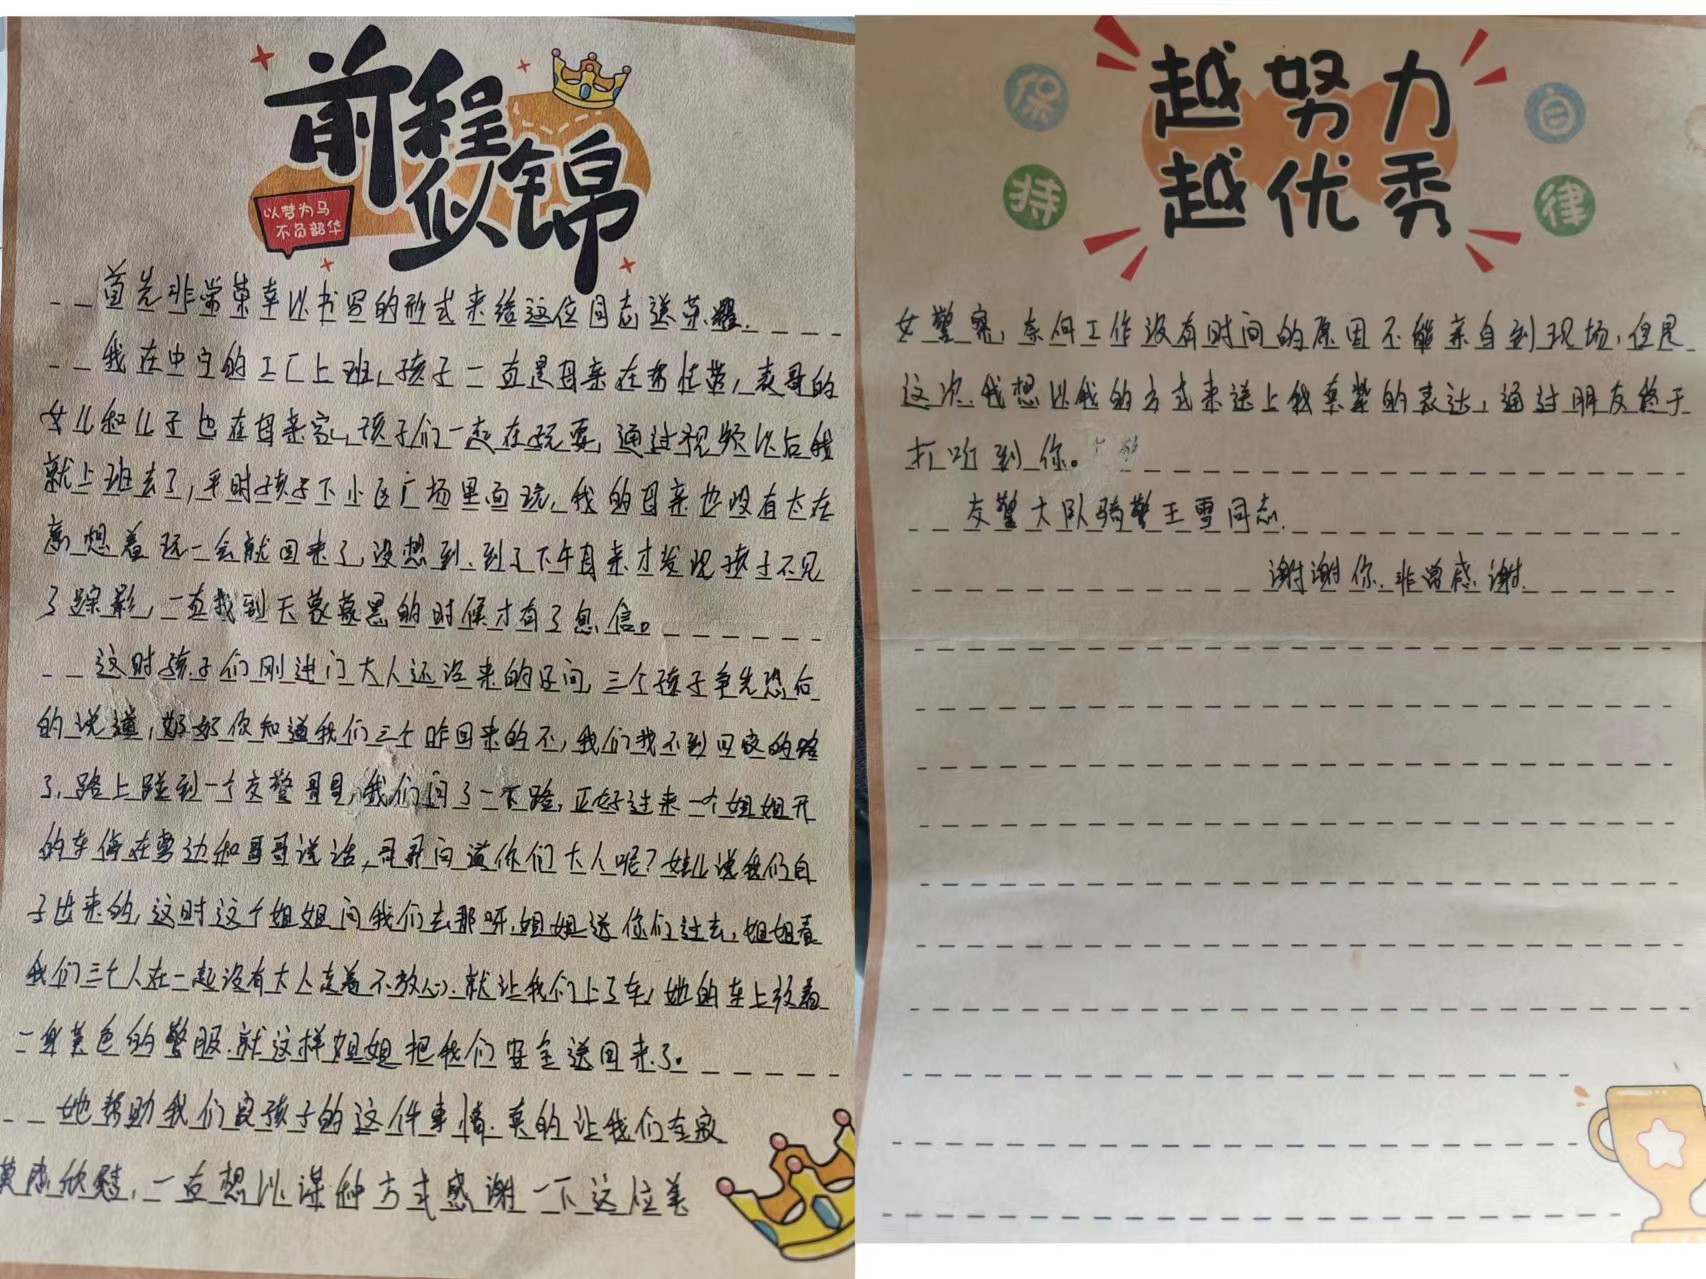 前程
似锦
以梦为马
不负韶华
首先非常荣幸以书写的形式来给这位同志送荣耀.
我在中宁的工厂上班,孩子一直是母亲在帮忙带,表哥的
女儿和儿子也在母亲家,孩子们一起在玩耍,通过视频以后我
就上班去了,平时孩子下小区广场里面玩,我的母亲也没有太在
意想着玩一会就回来了,没想到.到了下午母亲才发现孩子不见
了踪影,一直找到天蒙蒙黑的时候才有了息信。
这时孩子们刚进门大人还没来的及问,三个孩子争先恐后
的说道,奶奶你知道我们三个咋回来的不,我们找不到回家的路
了,路上碰到一个交警哥哥,我们问了一下路,正好过来一个姐姐开
的车停在旁边和哥哥说话,哥哥问道你们大人呢?娃儿说我们自
子出来的,这时这个姐姐问我们去那呀,姐姐送你们过去,姐姐看
我们三个人在一起没有大人走着不放心.就让我们上了车,她的车上放着
一身黄色的警服.就这样姐姐把我们安全送回来了。
她帮助我们家孩子的这件事情.真的让我们在家
莫感欣慰,一直想以某种方式感谢一下这位美
保持
自律
越努力
越优秀
女警察,奈何工作没有时间的原因不能亲自到现场,但是
这次.我想以我的方式来送上我真挚的表达,通过朋友终于
打听到你。
交警大队骑警王雪同志.
谢谢你.非常感谢.